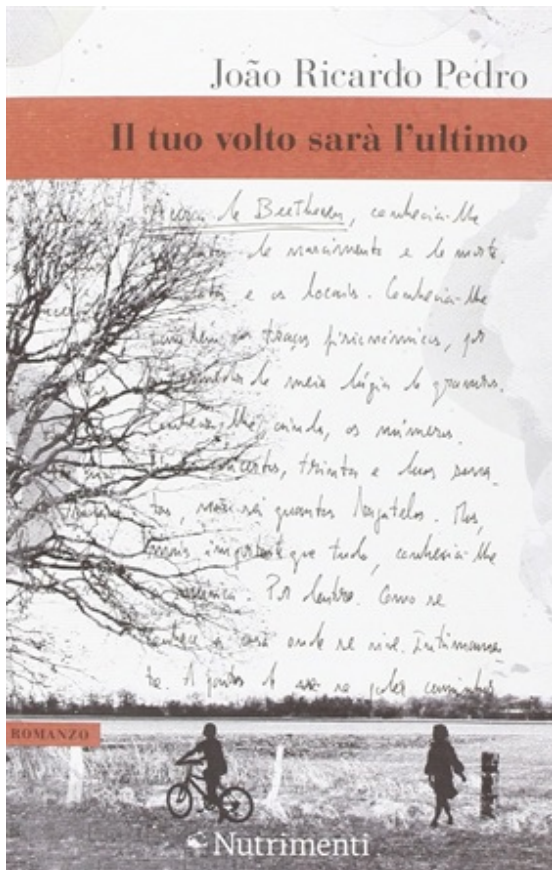 João Ricardo Pedro
Il tuo volto sarà l'ultimo
Acerca de Beethoven, conhecia-lhe
de nascimento e de morte.
e os locais. Conhecia-lhe
traços fisionómicos, por
de meia dúzia de gravuras.
Conhecia-lhe, ainda, os números.
concertos, trinta e duas sona-
tas, não sei quantas bagatelas. Mas,
mais importante que tudo, conhecia-lhe
a música. Por dentro. Como se
conhece a casa onde se vive. Intimamen-
te. A ponto de
ROMANZO
Nutrimenti